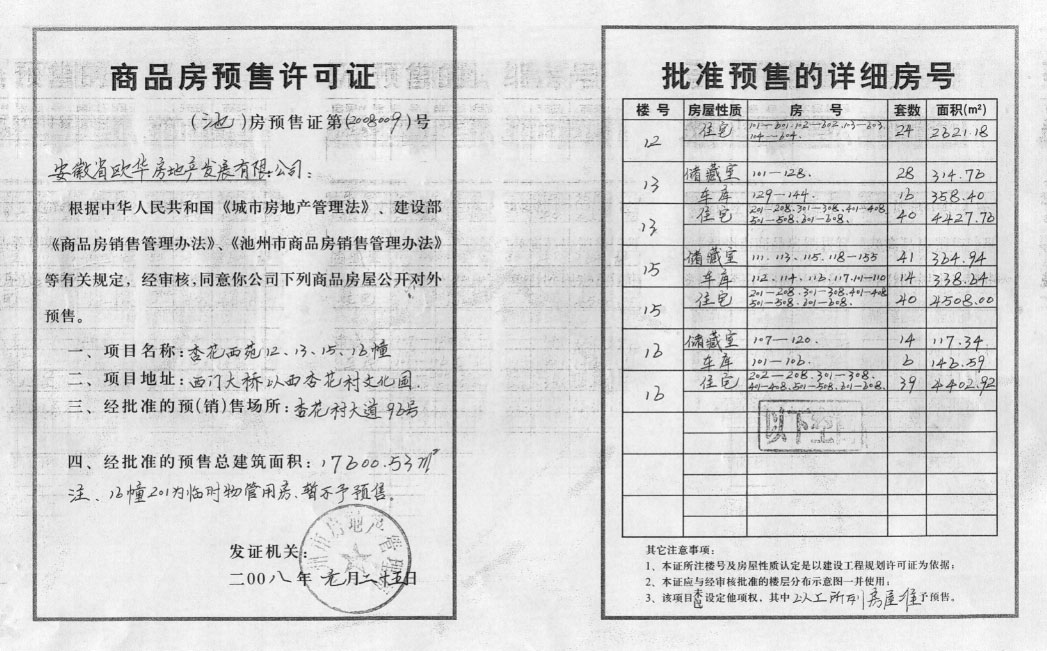 商品房预售许可证
(池)房预售证第(2008009)号
安徽省欧华房地产发展有限公司:
根据中华人民共和国《城市房地产管理法》、建设部
《商品房销售管理办法》、《池州市商品房销售管理办法》
等有关规定,经审核,同意你公司下列商品房屋公开对外
预售。
一、项目名称:杏花西苑12、13、15、16幢
二、项目地址:西门大桥以西杏花村文化园.
三、经批准的预(销)售场所:杏花村大道96号
四、经批准的预售总建筑面积:17600.53㎡
注、16幢201为临时物管用房、暂不予预售。
州市房地产管理
发证机关:
二00八年元月二十五日
批准预售的详细房号
楼号 房屋性质 房号 套数 面积(m²)
12 住宅 101—601.102—602.103—603. 104—604. 24 2621.18
13 储藏室 101—128. 28 314.76
车库 129—144. 16 358.40
13 住宅 201-208.301-308.401-408 501-508.601-608. 40 4427.76
15 储藏室 111.113.115.118-155 41 364.94
车库 112.114.116.117.101-110 14 338.64
15 住宅 201-208.301-308.401-408 501-508.601-608. 40 4508.00
16 储藏室 107—120. 14 117.34
车库 101—106. 6 146.59
16 住宅 202—208.301—308. 401-408.501-508.601-608. 39 4402.92
以下空
其它注意事项:
1、本证所注楼号及房屋性质认定是以建设工程规划许可证为依据;
2、本证应与经审核批准的楼层分布示意图一并使用;
3、该项目未设定他项权,其中以上所列房屋准予预售。